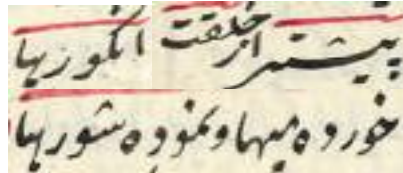 پیشتر از خلقت انگورها
خورده میها و نموده شورها